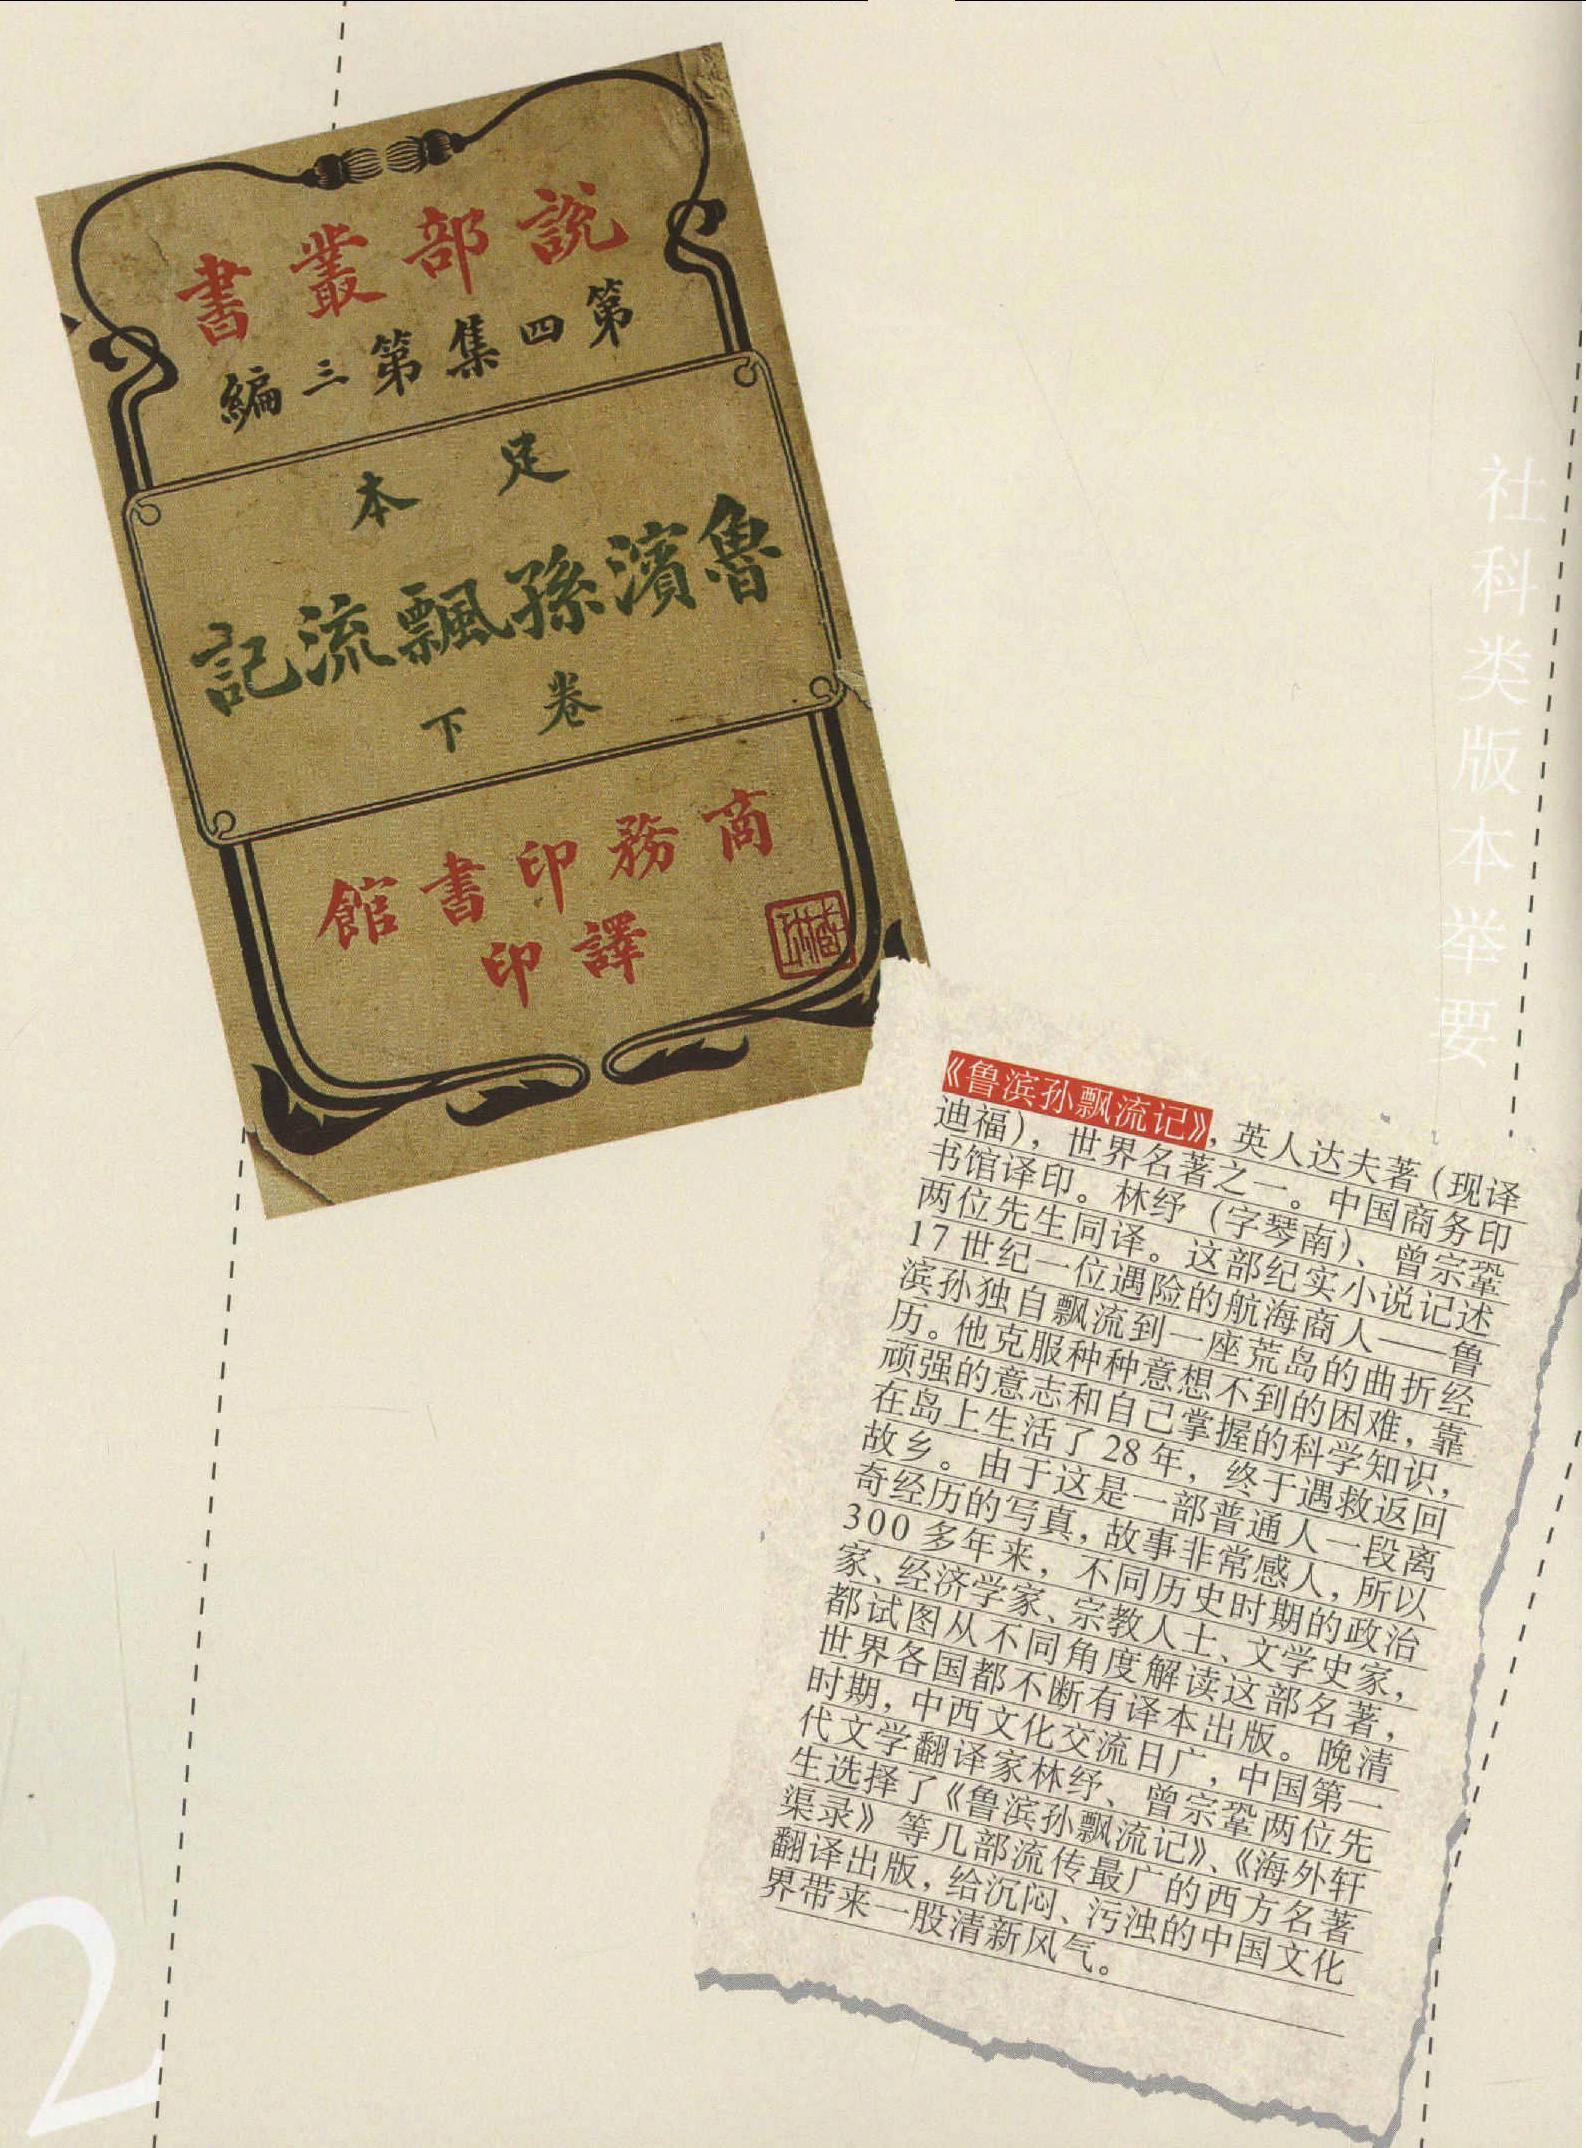 說部叢書
第四集第三編
足本
魯濱孫飄流記
卷下
商務印書館
譯印
社科类版本举要
《鲁滨孙飘流记》，英人达夫著（现译
迪福），世界名著之一。中国商务印
书馆译印。林纾（字琴南）、曾宗巩
两位先生同译。这部纪实小说记述
17世纪一位遇险的航海商人——鲁
滨孙独自飘流到一座荒岛的曲折经
历。他克服种种意想不到的困难，靠
顽强的意志和自己掌握的科学知识，
在岛上生活了28年，终于遇救返回
故乡。由于这是一部普通人一段离
奇经历的写真，故事非常感人，所以
300多年来，不同历史时期的政治
家、经济学家、宗教人士、文学史家，
都试图从不同角度解读这部名著，
世界各国都不断有译本出版。晚清
时期，中西文化交流日广，中国第一
代文学翻译家林纾、曾宗巩两位先
生选择了《鲁滨孙飘流记》、《海外轩
渠录》等几部流传最广的西方名著
翻译出版，给沉闷、污浊的中国文化
界带来一股清新风气。
2